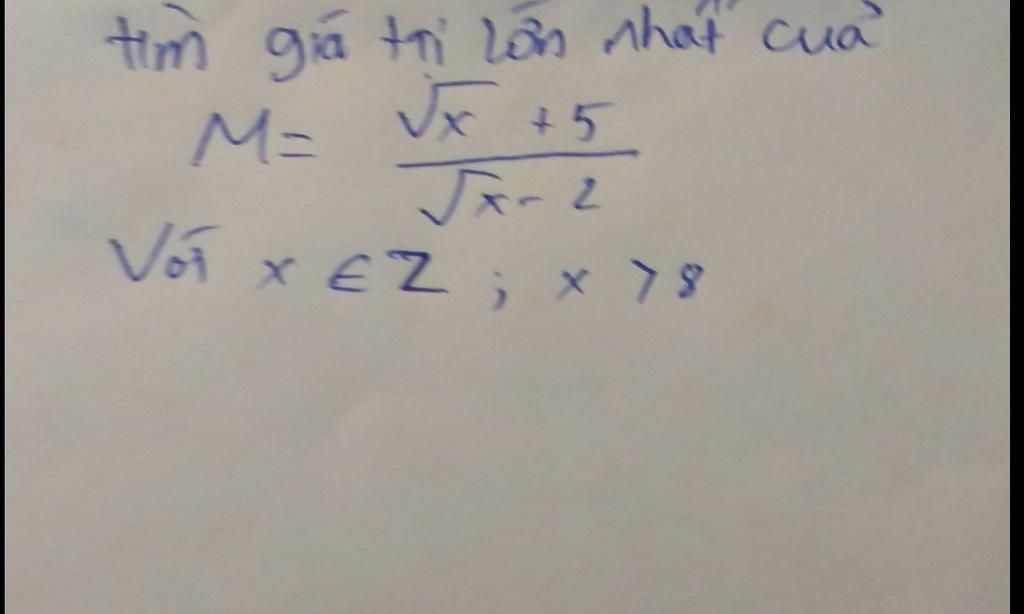 tìm giá trị lớn nhất của
M = \frac{\sqrt{x} + 5}{\sqrt{x} - 2}
Với x ∈ Z ; x > 8